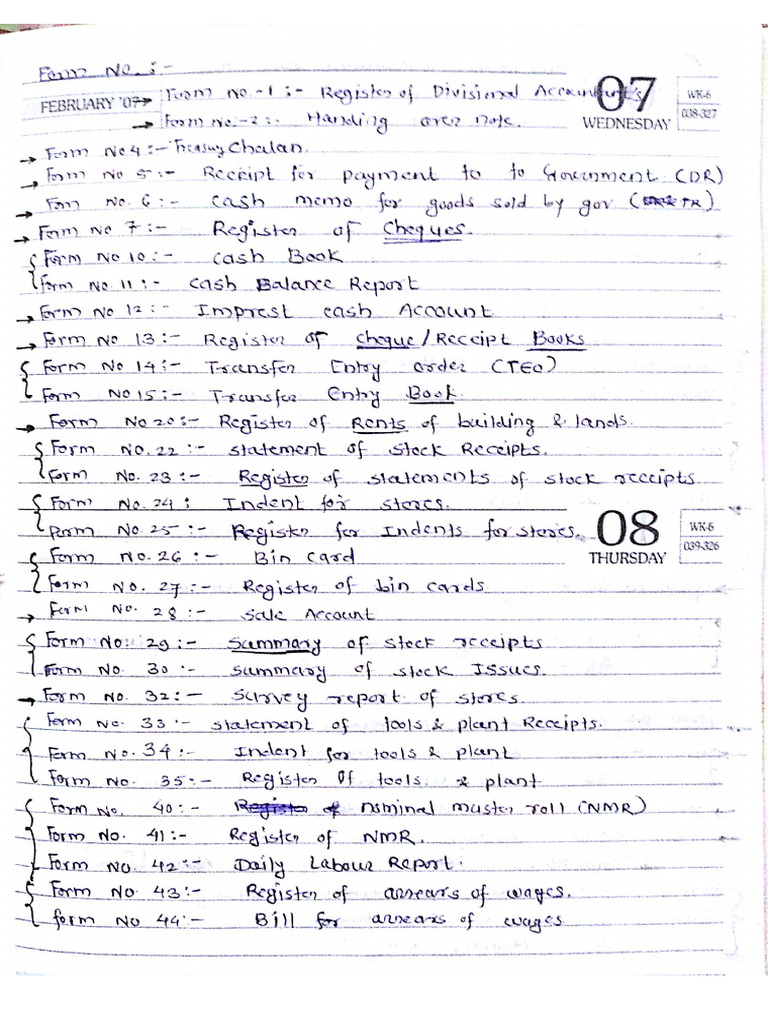 Form No. :-
FEBRUARY '07 → Form No.-1 :- Register of Divisional Accountant's
07
WEDNESDAY
WK-6
038-327
→ Form No.-2 :- Handing over note.
→ Form No 4 :- Treasury Chalan.
→ Form No 5 :- Receipt for payment to to Government (DR)
→ Form No. 6 :- cash memo for goods sold by gov (TR)
→ Form No 7 :- Register of Cheques.
Form No 10 :- cash Book
Form No 11 :- cash Balance Report
→ Form No 12 :- Imprest cash Account
→ Form No 13 :- Register of cheque/Receipt Books
Form No 14 :- Transfer Entry order (TEO)
Form No 15 :- Transfer Entry Book.
→ Form No 20 :- Register of Rents of building & lands.
Form No. 22 :- statement of stock Receipts.
Form No. 23 :- Register of statements of stock receipts
Form No. 24 : Indent for stores.
Form No. 25 :- Register for Indents for stores.
08
THURSDAY
WK-6
039-326
Form No. 26 :- Bin card
Form No. 27 :- Register of bin cards
→ Form No. 28 :- Sale Account
Form No. 29 :- Summary of stock receipts
Form No. 30 :- summary of stock Issues.
→ Form No. 32 :- Survey report of stores.
Form No. 33 :- statement of tools & plant Receipts.
Form No. 34 :- Indent for tools & plant
Form No. 35 :- Register of tools & plant
Form No. 40 :- Register of nominal muster roll (NMR)
Form No. 41 :- Register of NMR.
Form No. 42 :- Daily Labour Report.
Form No. 43 :- Register of arrears of wages.
form No 44 :- Bill for arrears of wages